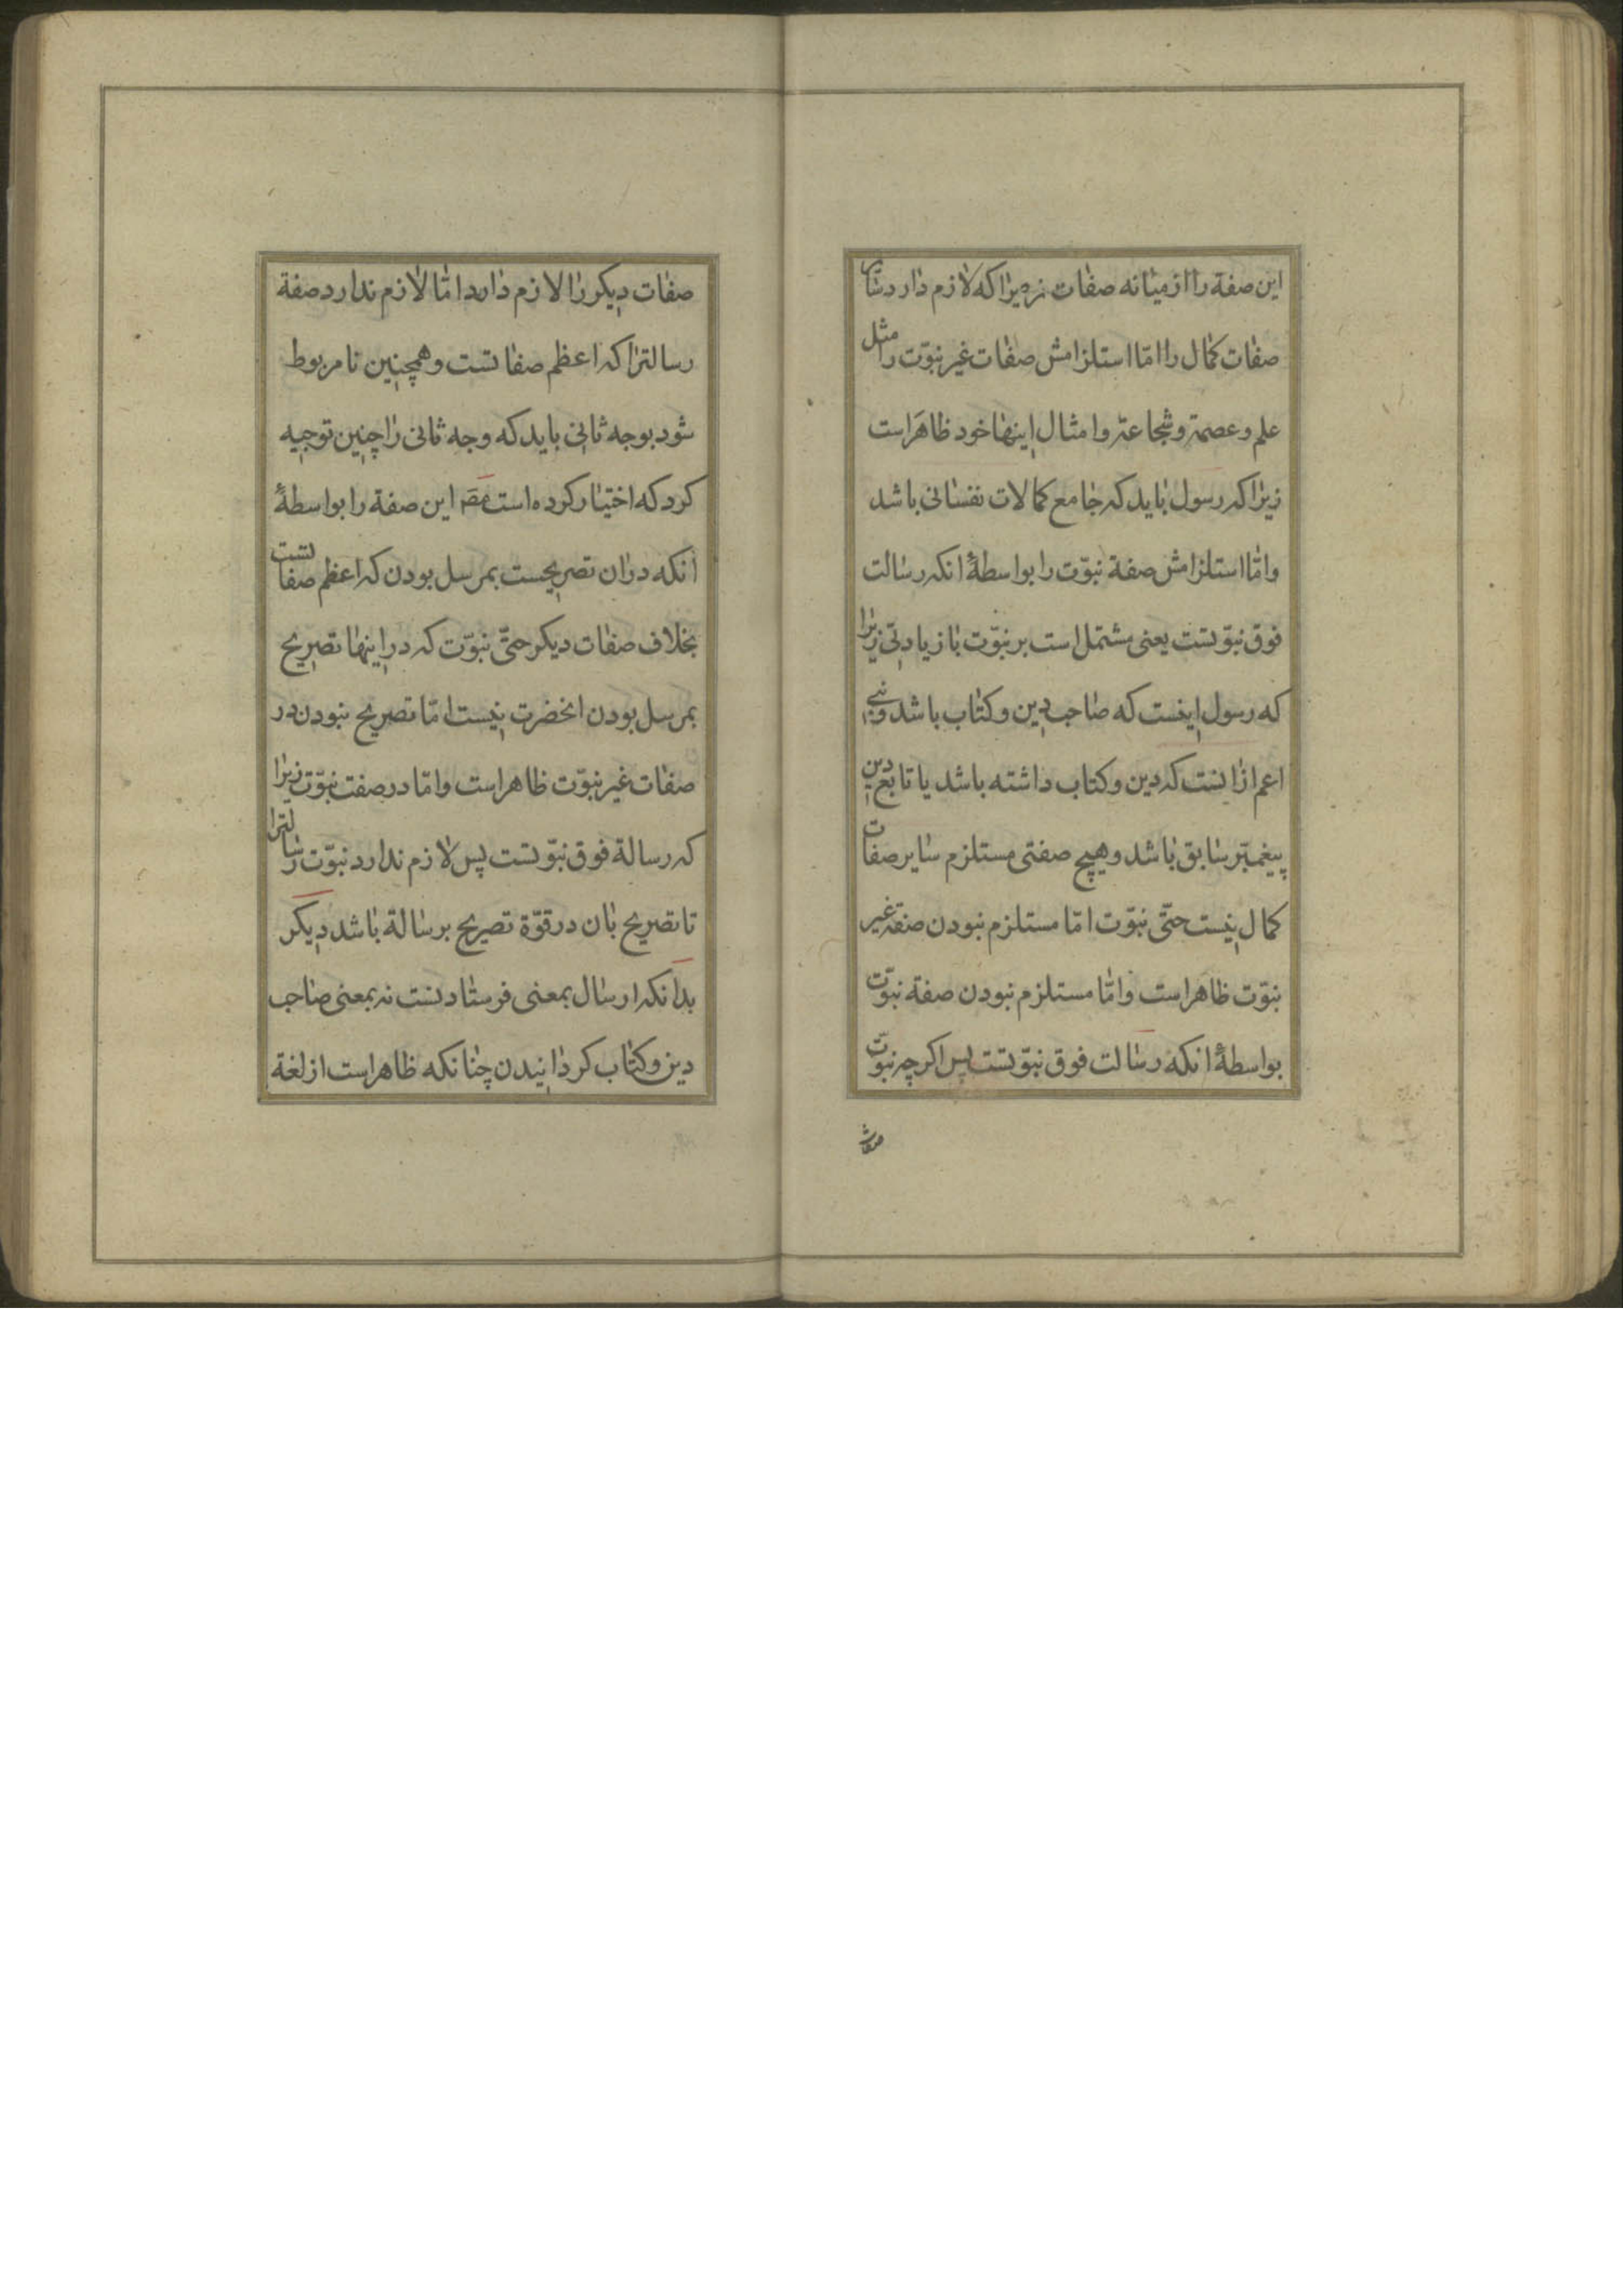 این صفة را از میانه صفات زیرا که لازم دارد سایر
صفات کمال را اما استلزامش صفات غیر نبوّت را مثل
علم و عصمة و شجاعة و امثال اینها خود ظاهر است
زیرا که رسول باید که جامع کمالات نفسانی باشد
و امّا استلزامش صفة نبوّت را بواسطهٔ انکه رسالت
فوق نبوّتست یعنی مشتمل است بر نبوّت با زیادتی زیرا
که رسول اینست که صاحب دین و کتاب باشد و نبی
اعم ازانست که دین و کتاب داشته باشد یا تابع دین
پیغمبر سابق باشد و هیچ صفتی مستلزم سایر صفات
کمال نیست حتّی نبوّت امّا مستلزم نبودن صفة غیر
نبوّت ظاهر است و امّا مستلزم نبودن صفة نبوّت
بواسطهٔ انکه رسالت فوق نبوّتست پس اکرچه نبوّت
صفات
صفات دیکر را لازم دارد امّا لازم ندارد صفة
رسالترا که اعظم صفاتست و همچنین تا مربوط
شود بوجه ثانی باید که وجه ثانی را چنین توجیه
کرد که اختیار کرده است مص این صفة را بواسطهٔ
انکه دران تصریحست بمرسل بودن که اعظم صفاتست
بخلاف صفات دیکر حتّی نبوّت که در اینها تصریح
بمرسل بودن انحضرت نیست امّا تصریح نبودن در
صفات غیر نبوّت ظاهر است و امّا در صفت نبوّت زیرا
که رسالة فوق نبوّتست پس لازم ندارد نبوّت رسالترا
تا تصریح بان در قوّة تصریح برسالة باشد دیکر
بدانکه ارسال بمعنی فرستادنست نه بمعنی صاحب
دین و کتاب کردانیدن چنانکه ظاهر است از لغة